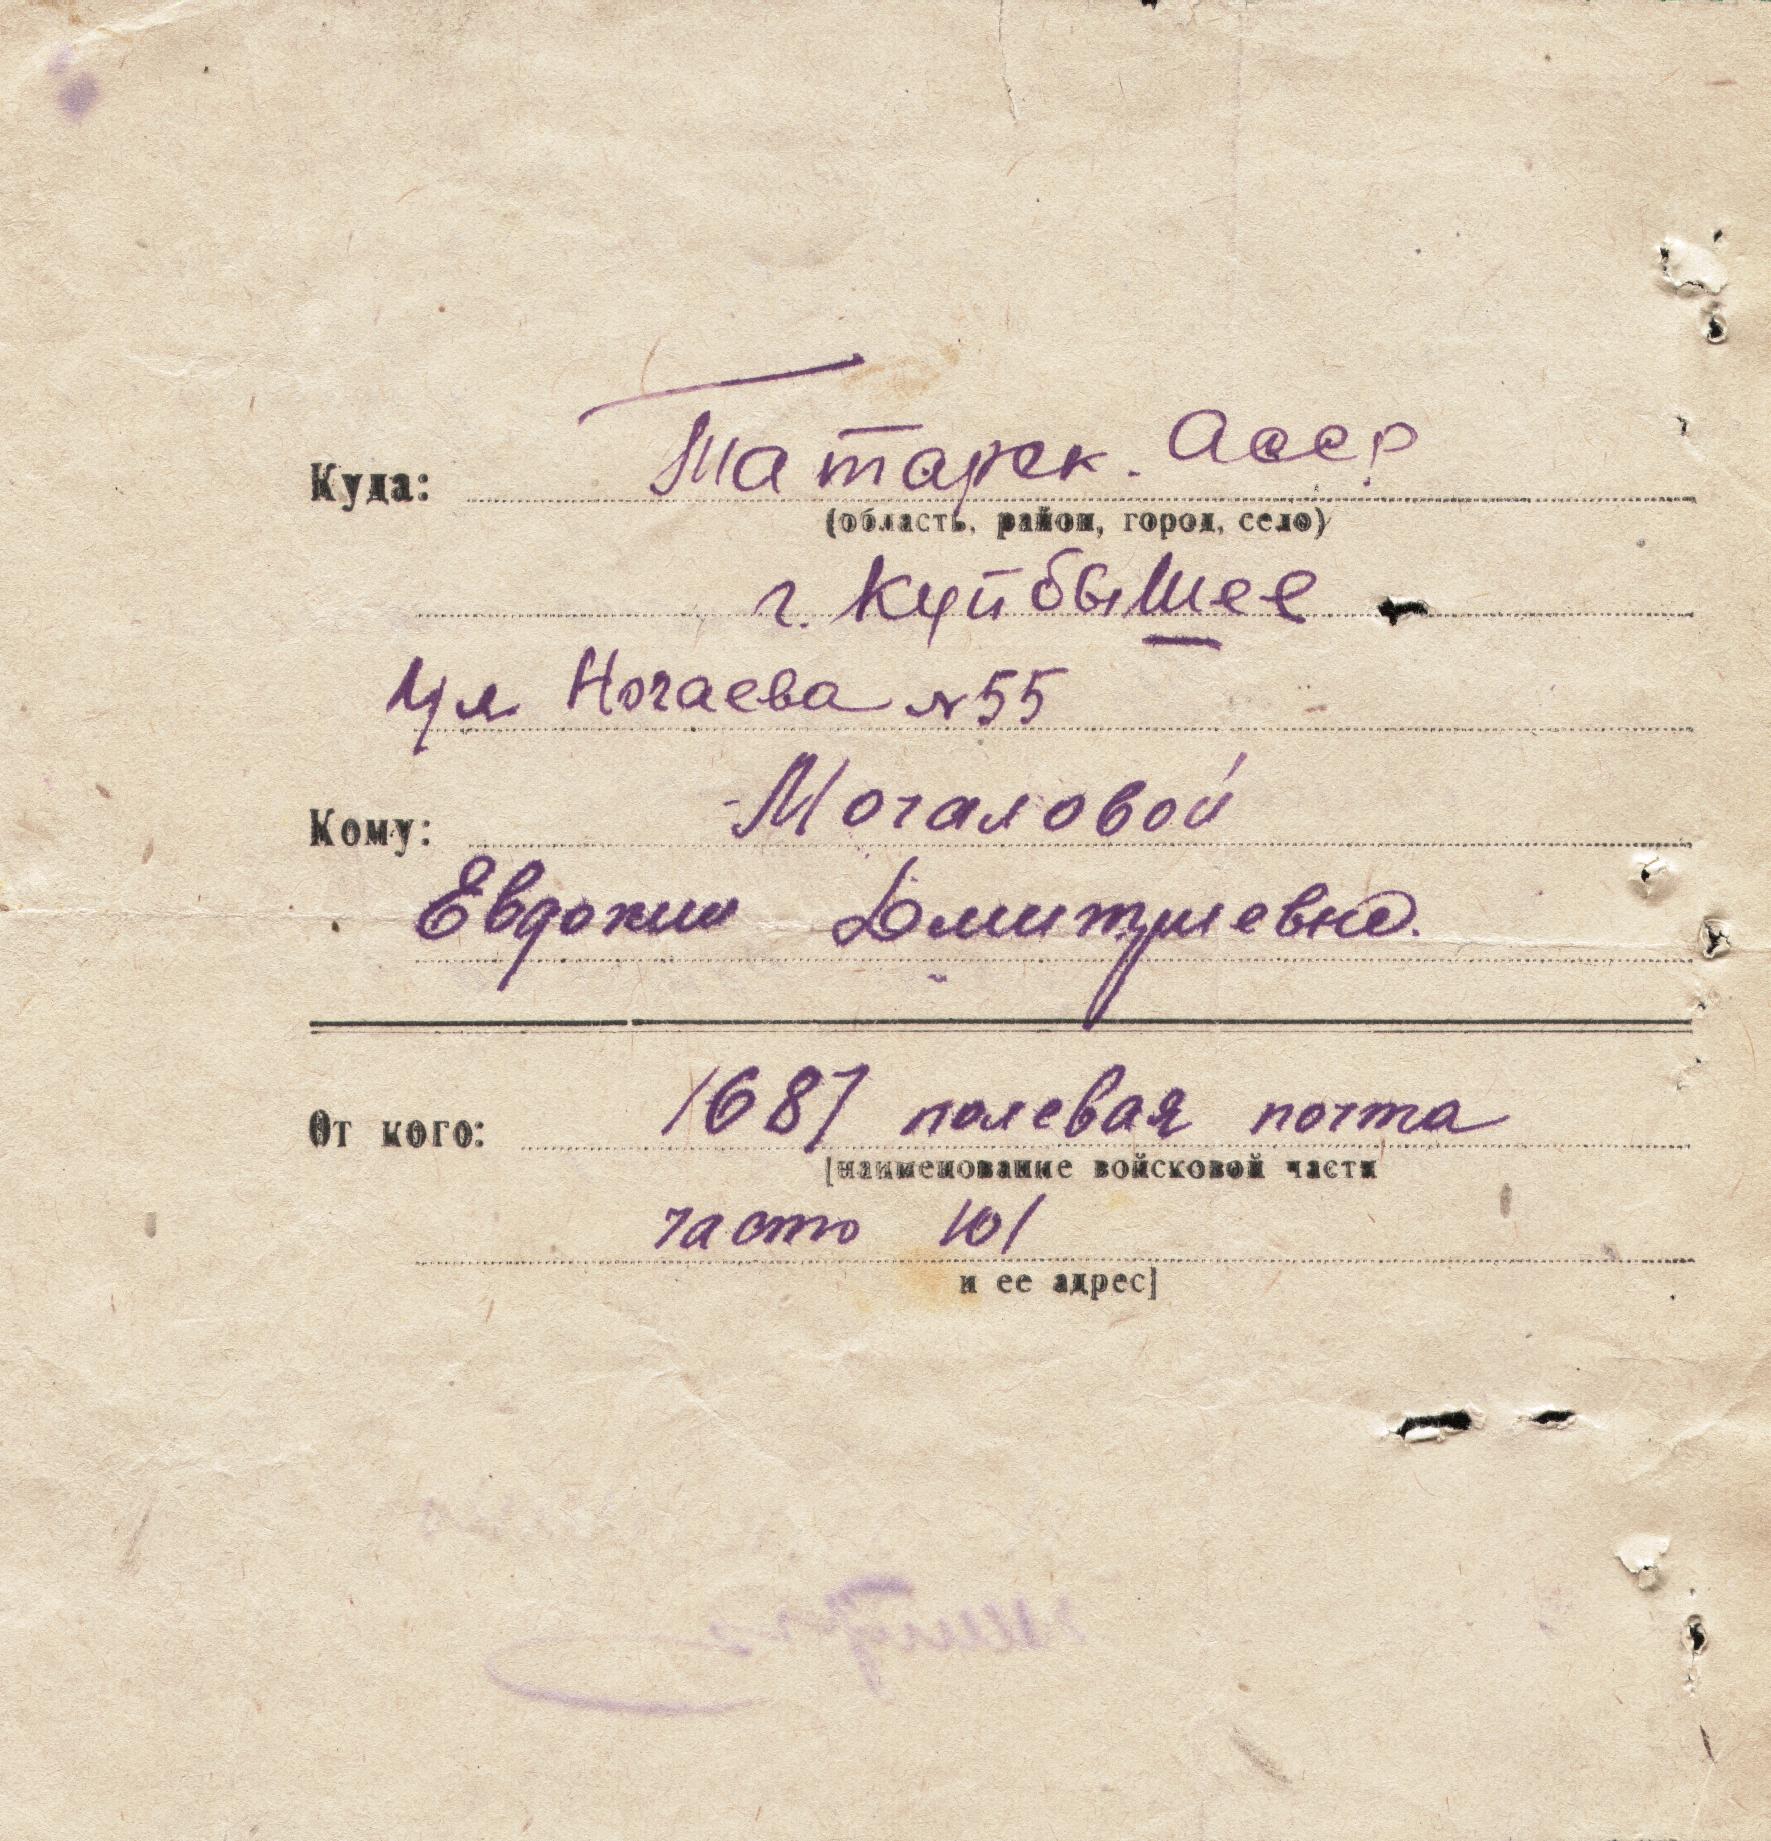 Куда: Татарск. АССР
(область, район, город, село)
г. Куйбышев
ул Ногаева № 55
Кому: Мочаловой
Евдокии Дмитриевне.
От кого: 1687 полевая почта
[наименование войсковой части
часть 101
и ее адрес]